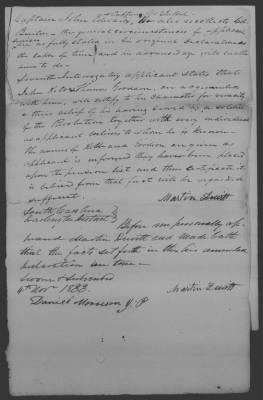 Captain John
Benton - the general circumstances of applicants
are as fully stated in his original declaration as
the lapse of time and his advanced age will enable
him to do -
Seventh Interrogatory applicant states that
John Kolb & Thomas Goodson, are acquainted
with him, will testify to his character for veracity
& their belief of his having served as a soldier
of the Revolution together with every individual
as applicant believes to whom he is known -
the names of Kolb and Goodson are given as
applicant is informed they have been placed
upon the pension list and their certificate it
is believed from that fact will be regarded
sufficient.
Martin Dewitt
South Carolina
Darlington District
Before me personally ap-
peared Martin Dewitt and made Oath
that the facts set forth in this his amended
declaration are true -
Sworn & Subscribed
4th Nov 1833.
Martin Dewitt
Daniel